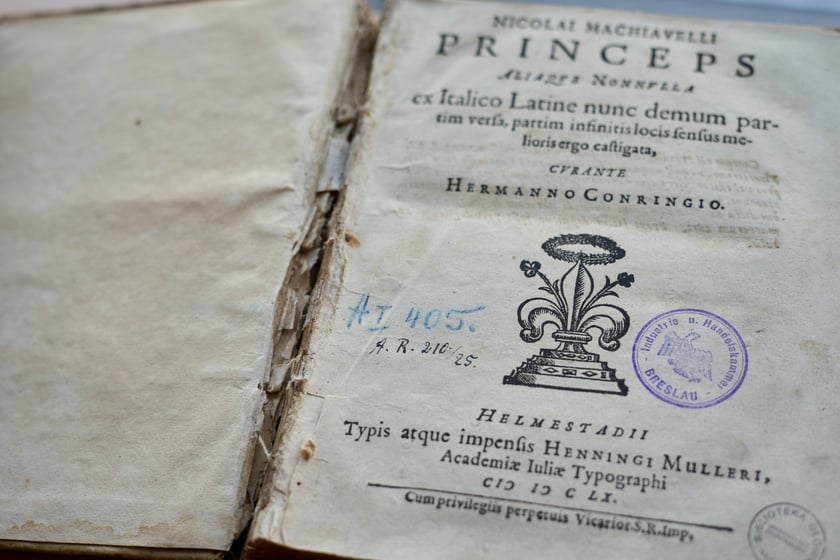 NICOLAI MACHIAVELLI
PRINCEPS
ALIAQVE NONNVLLA
ex Italico Latine nunc demum par-
tim versa, partim infinitis locis sensus me-
lioris ergo castigata,
CVRANTE
HERMANNO CONRINGIO.
AI 405.
A. R. 210/25.
Industrie u. Handelskammer
BRESLAU
HELMESTADII
Typis atque impensis HENNINGI MULLERI,
Academiæ Iuliæ Typographi
CIↃ IↃ C LX.
Cum privilegiis perpetuis Vicarior. S. R. Imp,
BIBLIOTEKA